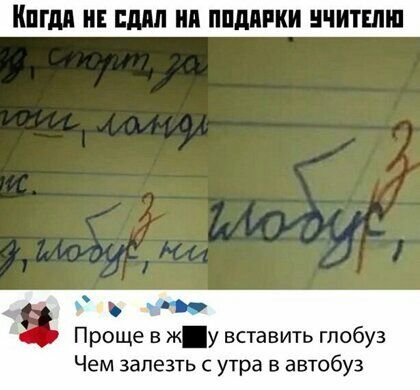 Когда не сдал на подарки учителю
д, спорт, за
ош, ланды
ж.
з
з, глобус, ни
з
глобус,
Проще в ж у вставить глобуз
Чем залезть с утра в автобуз